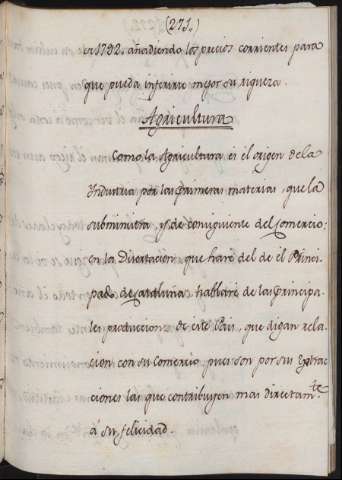 (271.)
à 1792. añadiendo los precios corrientes para
que pueda inferirse mejor su riqueza.
Agricultura
Como la Agricultura es el origen de la
Industria por las primeras materias, que la
subministra y de consiguiente del Comercio:
en la Disertacion que haré del de el Princi-
pado de Cataluña hablaré de las principa-
les producciones de este Pais, que digan rela-
cion con su Comercio, pues son por sus Extrac-
ciones las que contribuyen mas directam.te
á su felicidad.